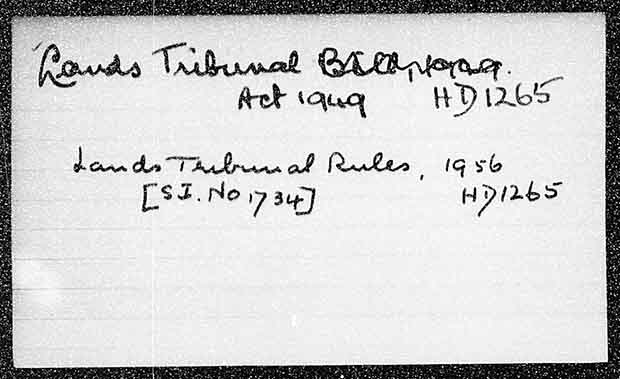 Lands Tribunal Bill, 1949.
Act 1949 HD1265
Lands Tribunal Rules, 1956
[S.I. No 1734] HD1265